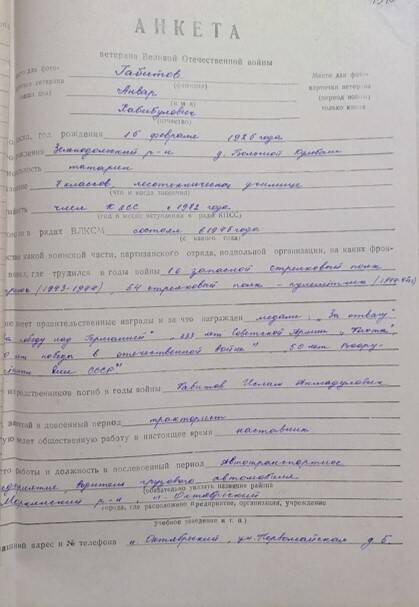 АНКЕТА
ветерана Великой Отечественной войны
Габитов
(фамилия)
Анвар
(имя)
Хабибулович
(отчество)
Место для фото-
карточки ветерана
(период войны)
только копия
год рождения 16 февраля 1926 года
р-н д. Большой
татарин
7 классов, лесотехническое училище
(что и когда закончил)
член КПСС с 1982 года
(год и месяц вступления в ряды КПСС)
в рядах ВЛКСМ состоял с 1945 года
(с какого года)
какой воинской части, партизанского отряда, подпольной организации, на каких фрон-
где трудился в годы войны 16 запасной стрелковый полк
(1943-1944), 54 стрелковый полк - пулеметчик
имеет правительственные награды и за что награжден медали "За отвагу"
победу над Германией", лет Советской Армии
лет победа в отечественной войне" 50 лет Воору-
СССР"
родственников погиб в годы войны Габитов Ислам
занятий в довоенный период тракторист
ведет общественную работу в настоящее время наставник
работы и должность в послевоенный период Автотранспортное
водитель грузового автомобиля
(обязательно указать название района
р-н, п. Октябрьский
города, где расположено предприятие, организация, учреждение
учебное заведение и т. п.)
адрес и № телефона п. Октябрьский, ул. Первомайская д. 5